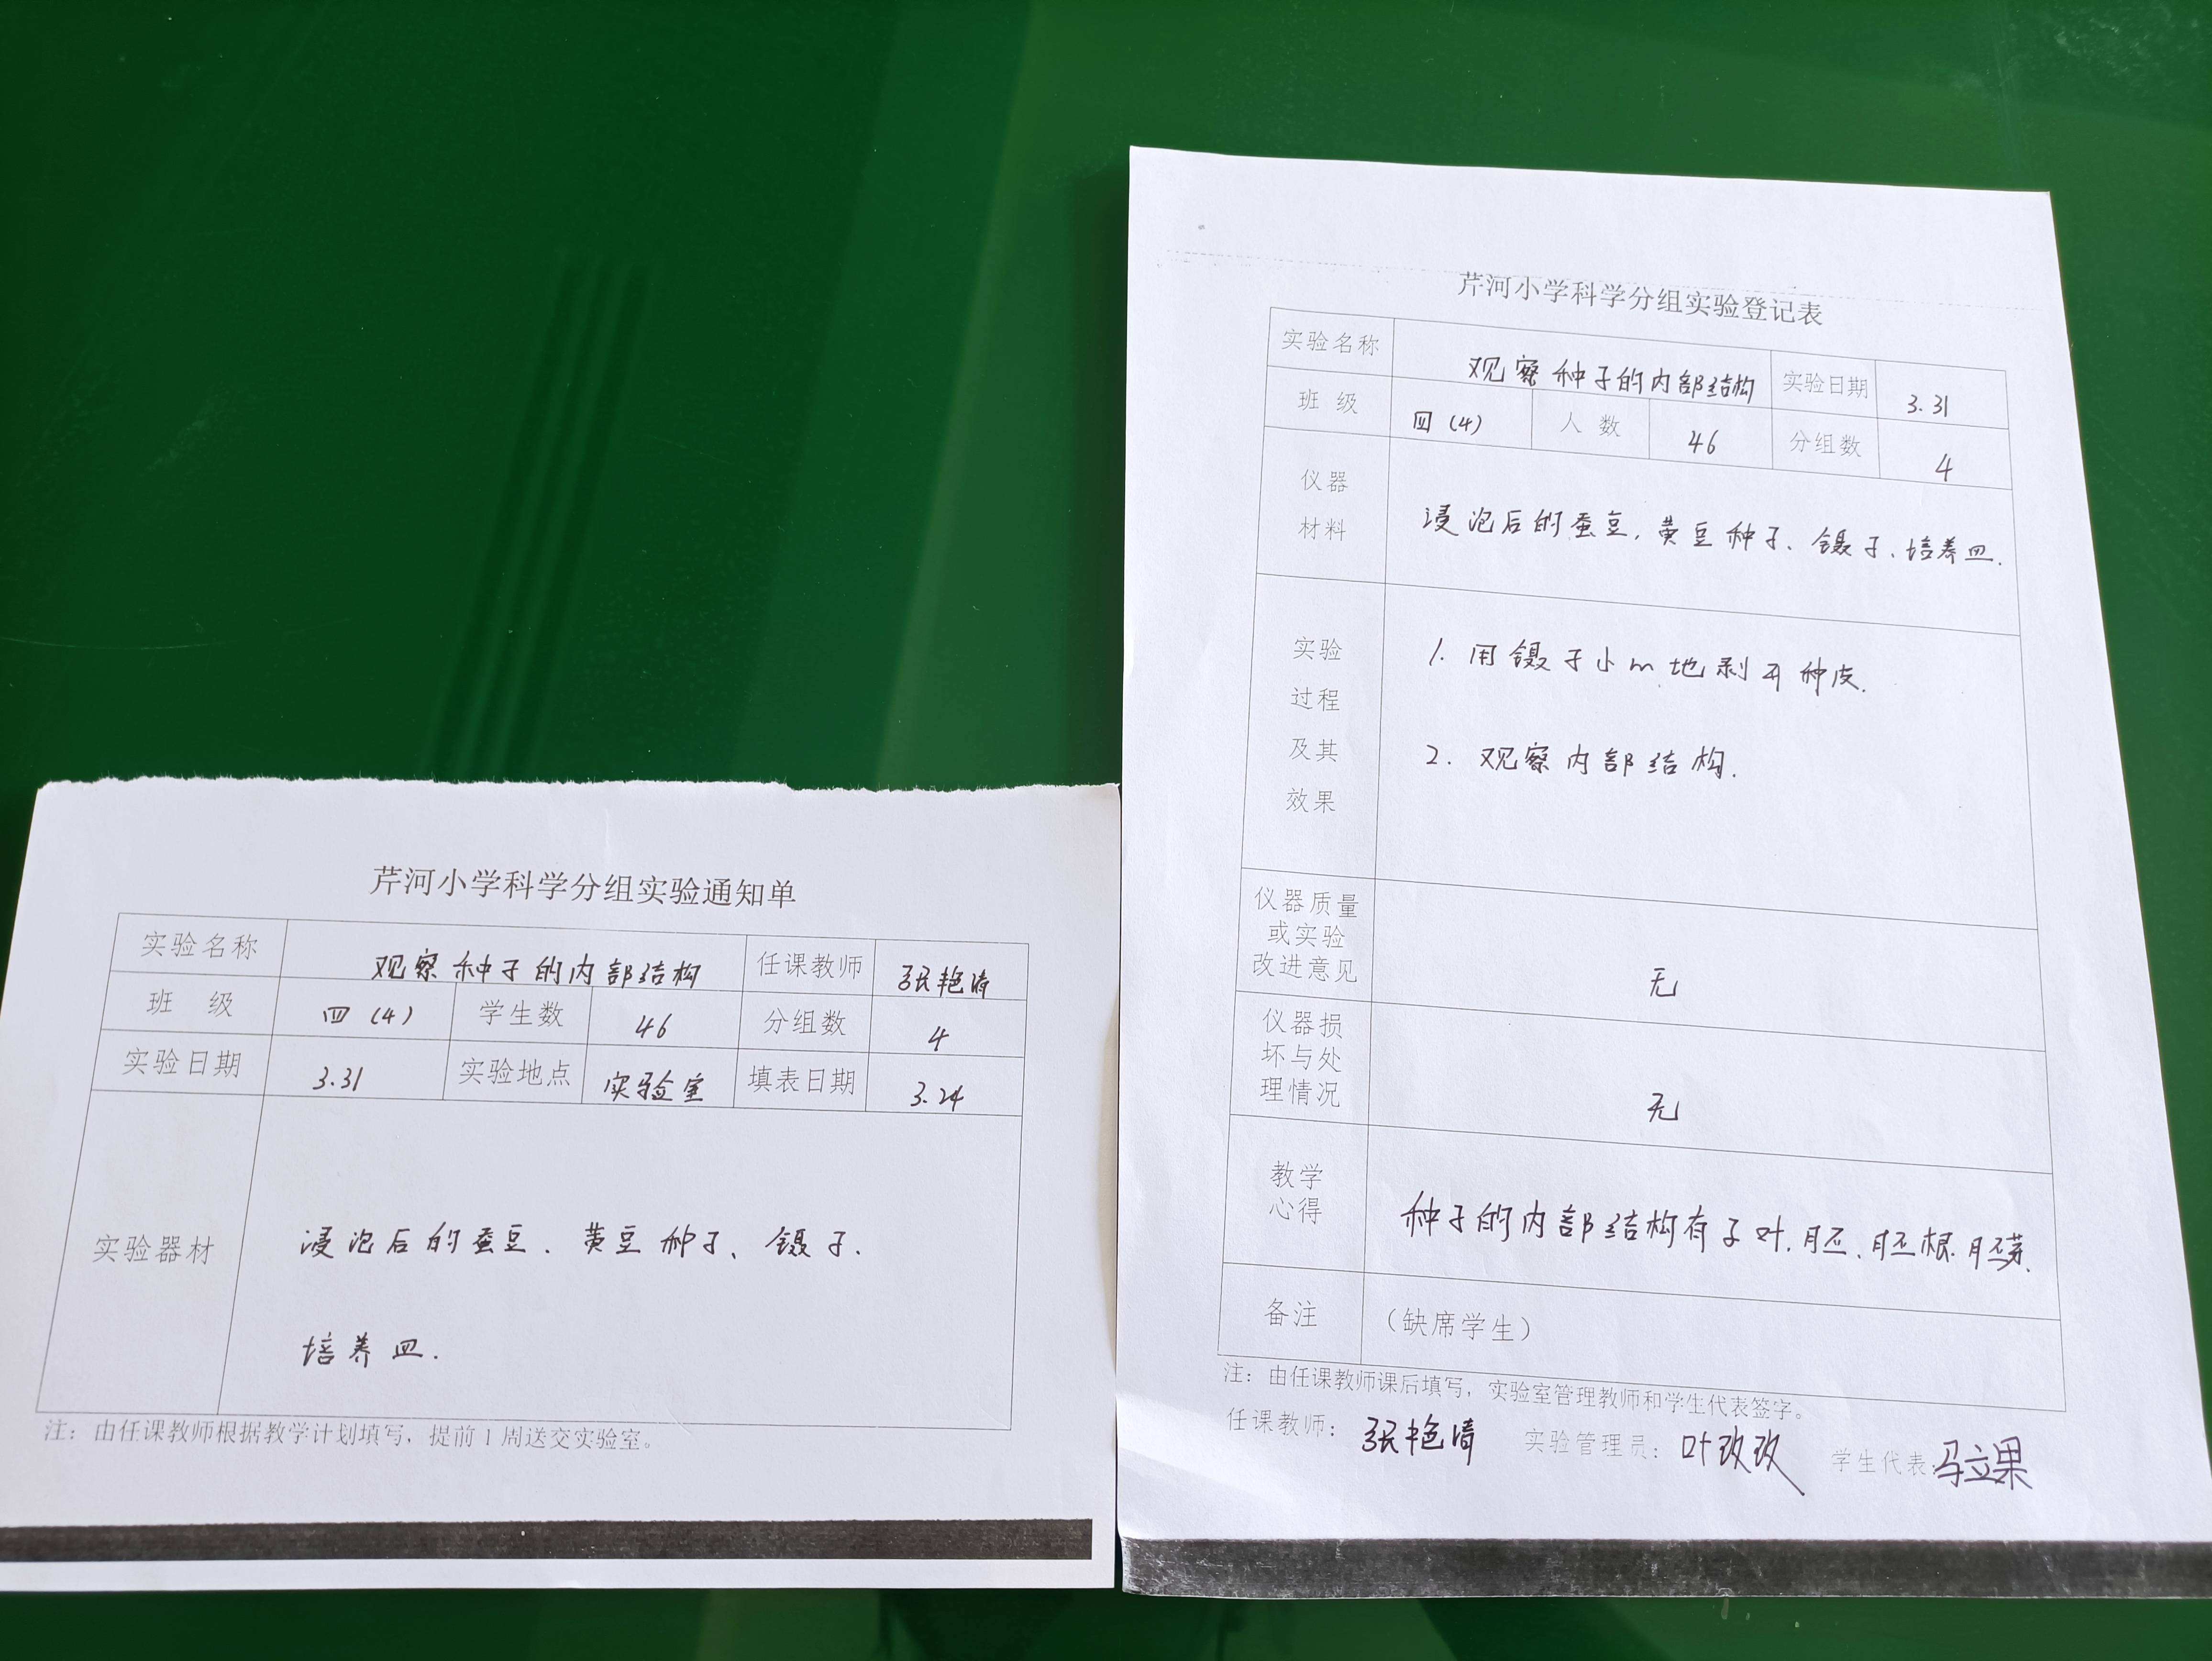 芹河小学科学分组实验通知单
实验名称 观察种子的内部结构 任课教师 张艳清
班 级 四（4） 学生数 46 分组数 4
实验日期 3.31 实验地点 实验室 填表日期 3.24
实验器材 浸泡后的蚕豆、黄豆种子、镊子.
培养皿.
注：由任课教师根据教学计划填写，提前1周送交实验室。
芹河小学科学分组实验登记表
实验名称 观察种子的内部结构 实验日期 3.31
班 级 四（4） 人 数 46 分组数 4
仪器
材料
浸泡后的蚕豆，黄豆种子、镊子、培养皿.
实验
过程
及其
效果
1. 用镊子小心地剥开种皮.
2. 观察内部结构.
仪器质量
或实验
改进意见
无
仪器损
坏与处
理情况
无
教学
心得
种子的内部结构有子叶.胚、胚根.胚芽.
备注 （缺席学生）
注：由任课教师课后填写，实验室管理教师和学生代表签字。
任课教师：张艳清 实验管理员：叶玫玫 学生代表：马立果